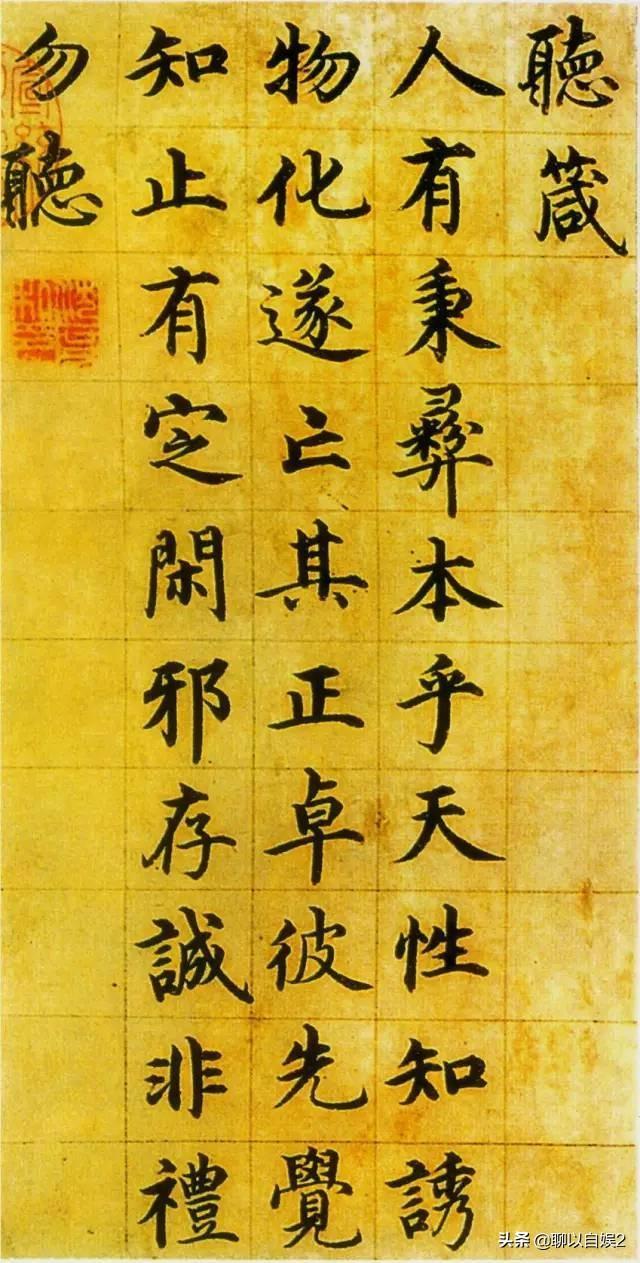 聽箴
人有秉彝本乎天性知誘
物化遂亡其正卓彼先覺
知止有定閑邪存誠非禮
勿聽
头条 @聊以自娱2